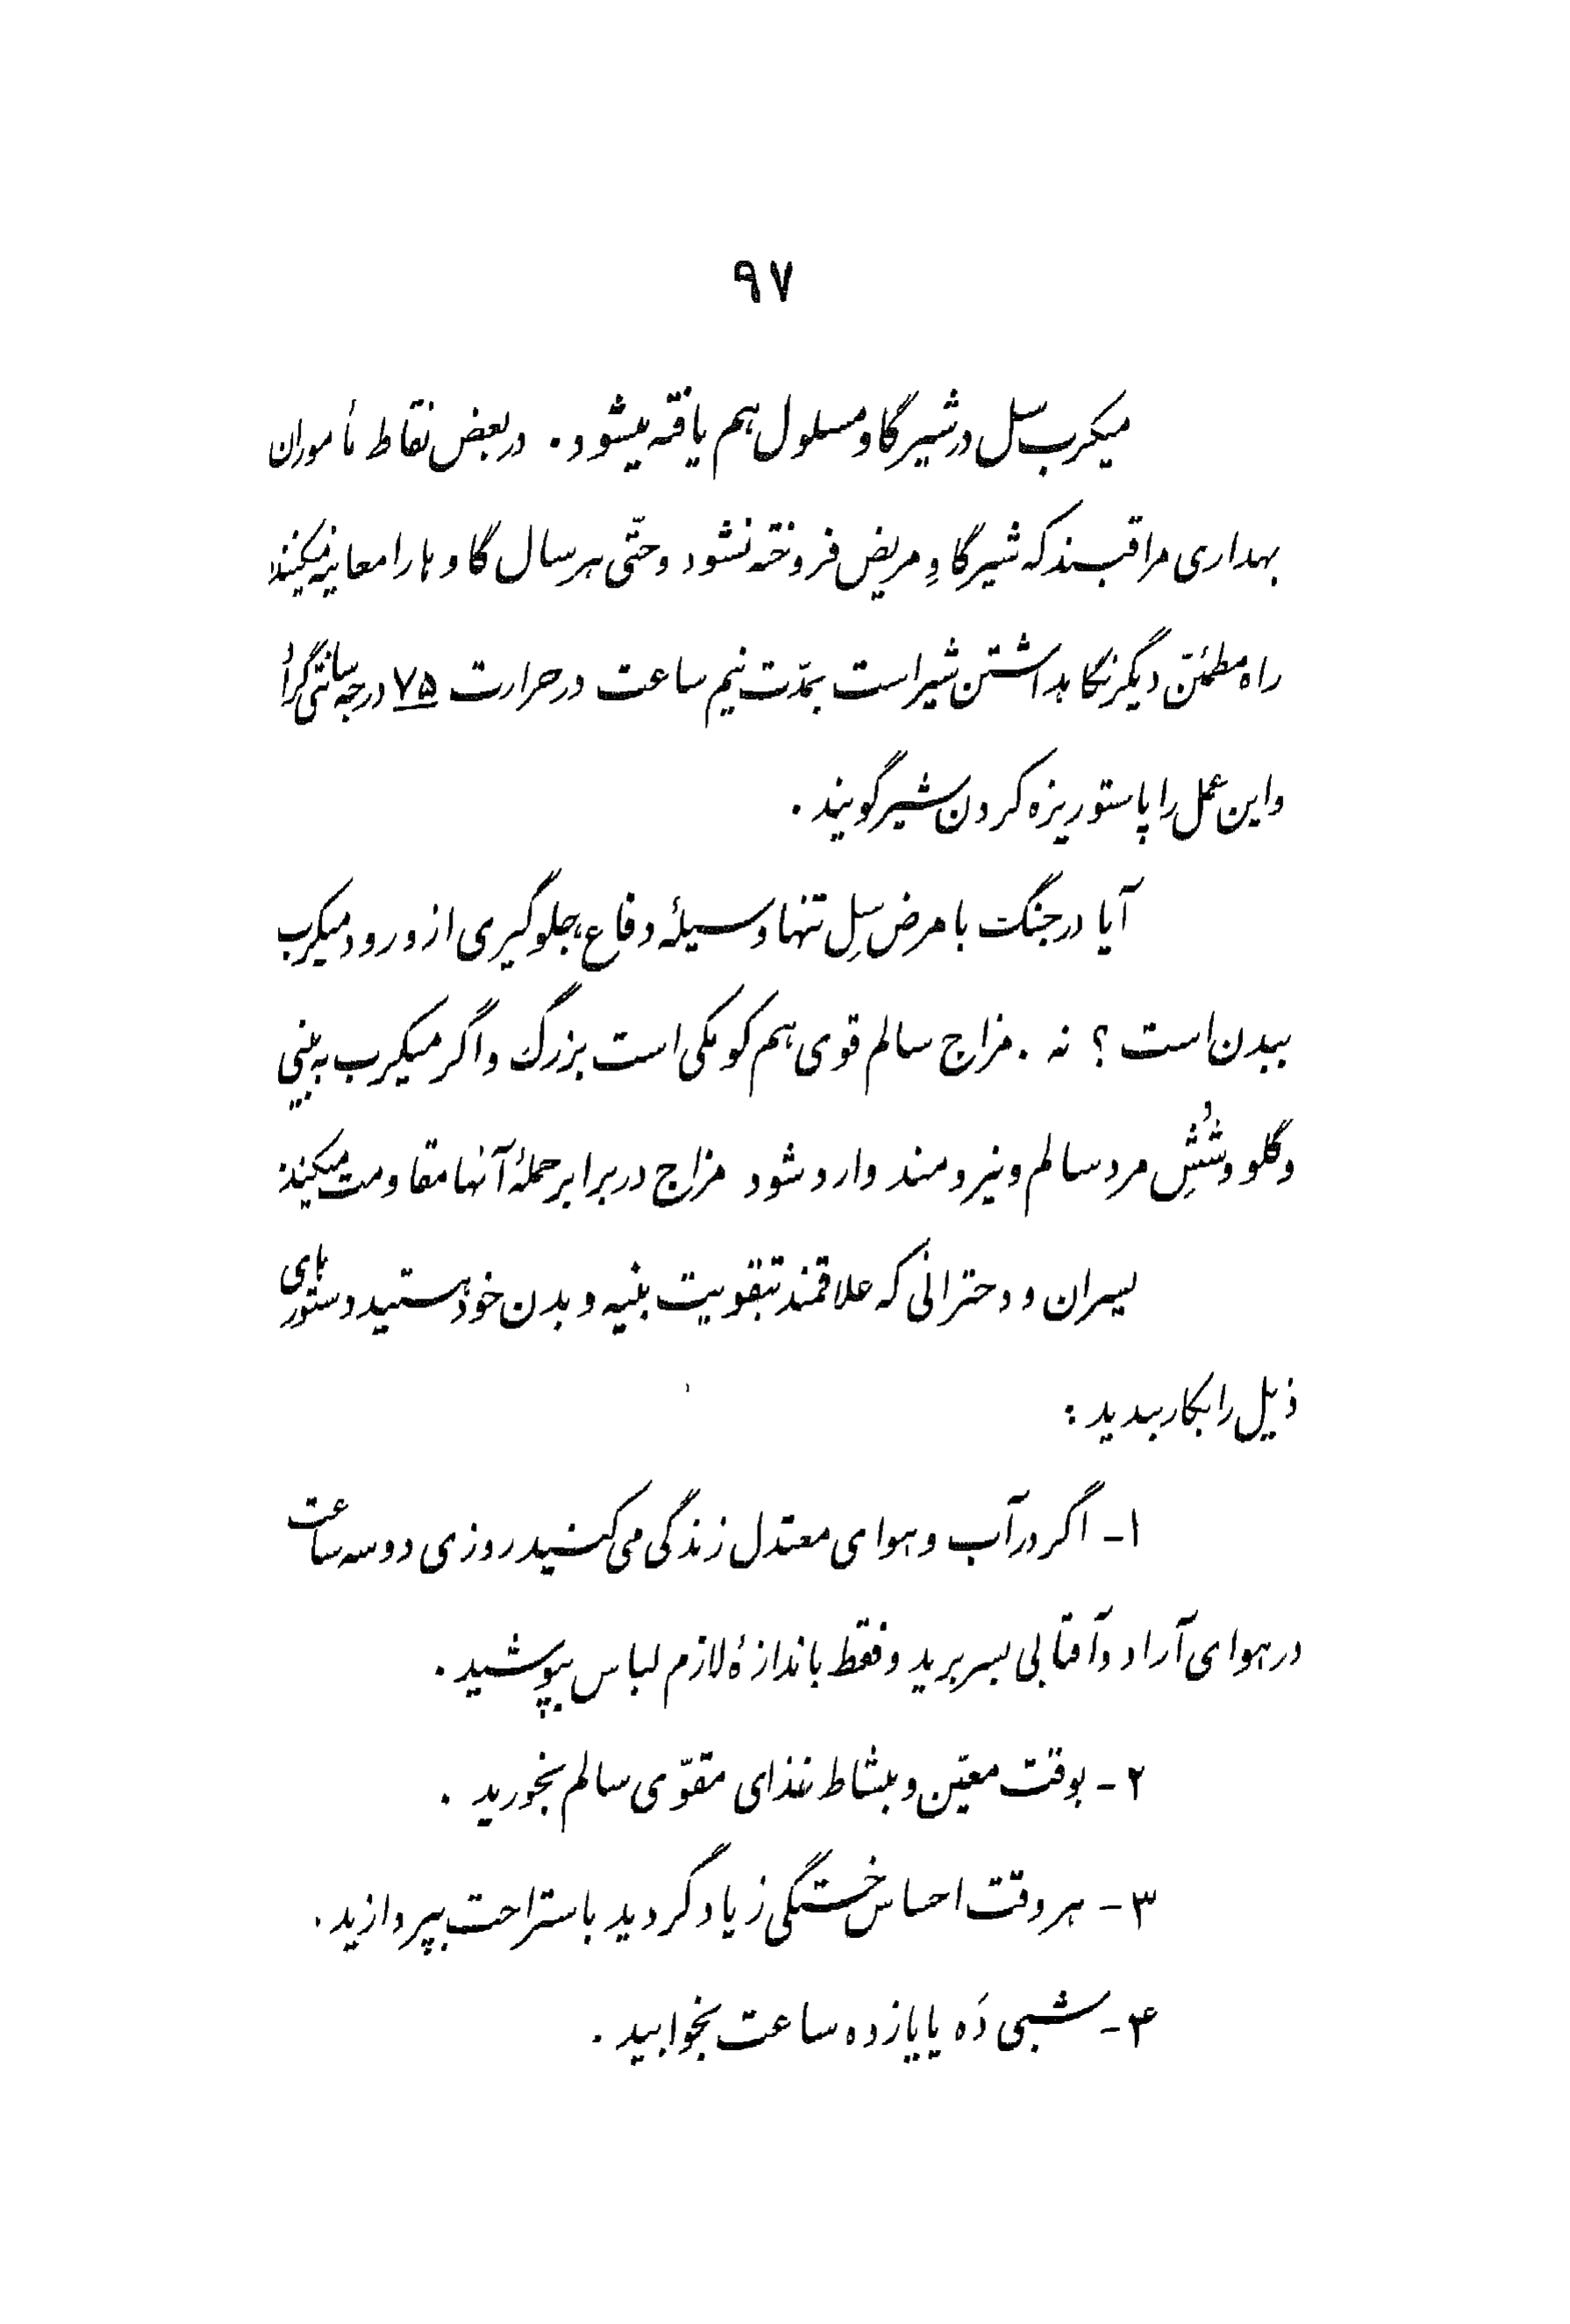 ۹۷
میکرب سل در شیر گاو مسلول هم یافته میشود. در بعض نقاط مأموران
بهداری مراقبند که شیر گاوِ مریض فروخته نشود و حتّی هر سال گاوها را معاینه میکنند
راه مطمئن دیگر نگاهداشتن شیر است بمدّت نیم ساعت در حرارت ۷۵ درجه سانتی گراد
و این عمل را پاستوریزه کردن شیر گویند.
آیا در جنگ با مرض سِل تنها وسیلهٔ دفاع، جلوگیری از ورود میکرب
ببدن است؟ نه. مزاج سالم قوی هم کومکی است بزرگ و اگر میکرب به بینی
و گلو و شُشِ مرد سالم و نیرومند وارد شود مزاج در برابر حملهٔ آنها مقاومت میکند
پسران و دخترانی که علاقمند بتقویت بنیه و بدن خود هستید دستورهای
ذیل را بکار ببدید:
۱- اگر در آب و هوای معتدل زندگی می کنید روزی دو سه ساعت
در هوای آزاد و آفتابی بسر برید و فقط باندازهٔ لازم لباس بپوشید.
۲- بوقت معیّن و بنشاط غذای مقوّی سالم بخورید.
۳- هر وقت احساس خستگی زیاد گردید باستراحت بپردازید.
۴- شبی دَه یا یازده ساعت بخوابید.